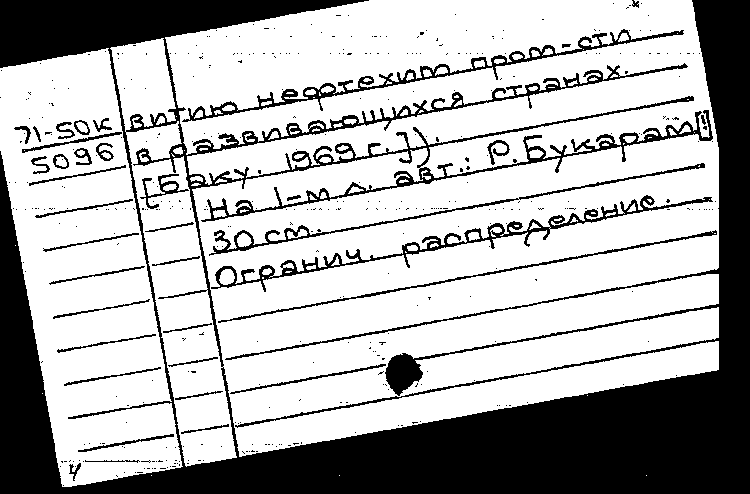 71-50к витию нефтехим пром-сти
5096 в развивающихся странах.
[Баку. 1969 г.]).
На 1-м л. авт.: Р. Букарам [!]
30 см.
Огранич. распределение.